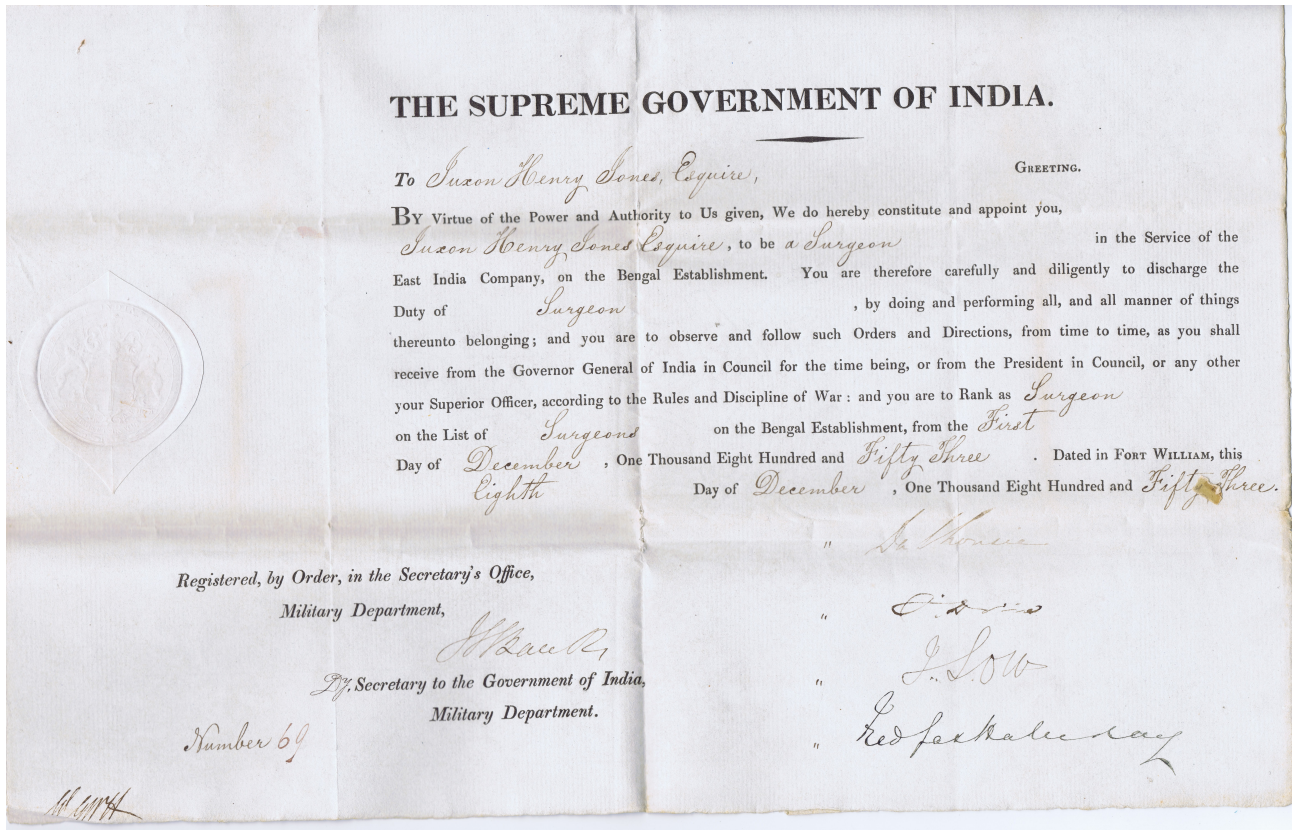 THE SUPREME GOVERNMENT OF INDIA.
To Juxon Henry Jones, Esquire, GREETING.
BY Virtue of the Power and Authority to Us given, We do hereby constitute and appoint you,
Juxon Henry Jones Esquire, to be a Surgeon in the Service of the
East India Company, on the Bengal Establishment. You are therefore carefully and diligently to discharge the
Duty of Surgeon , by doing and performing all, and all manner of things
thereunto belonging; and you are to observe and follow such Orders and Directions, from time to time, as you shall
receive from the Governor General of India in Council for the time being, or from the President in Council, or any other
your Superior Officer, according to the Rules and Discipline of War: and you are to Rank as Surgeon
on the List of Surgeons on the Bengal Establishment, from the First
Day of December , One Thousand Eight Hundred and Fifty Three . Dated in FORT WILLIAM, this
Eighth Day of December , One Thousand Eight Hundred and Fifty Three.
" Dalhousie
"
" J. Low
" Fred Jas Halliday
Registered, by Order, in the Secretary's Office,
Military Department,
Dy. Secretary to the Government of India,
Military Department.
Number 69